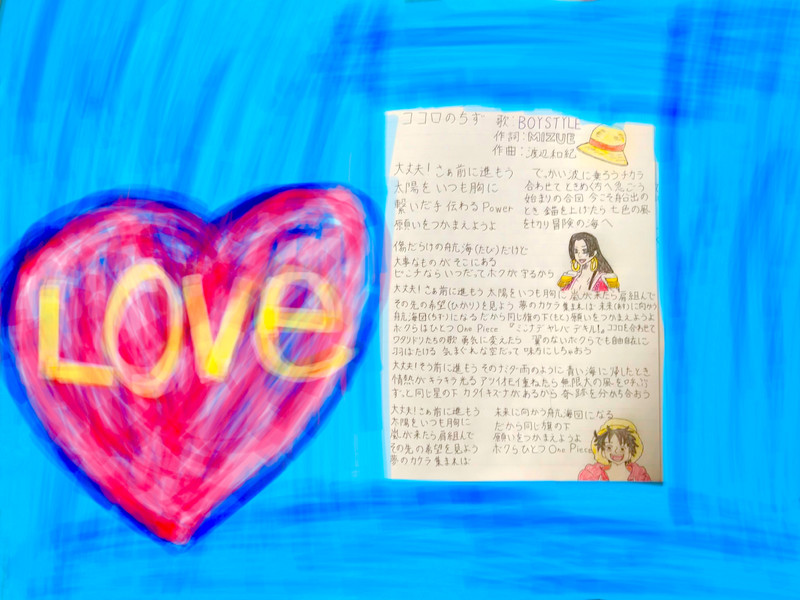 Love
ココロのちず 歌:BOYSTYLE
作詞:MIZUE
作曲:渡辺和紀
大丈夫!さぁ前に進もう
太陽をいつも胸に
繋いだ手伝わるPower
願いをつかまえようよ
でっかい波に乗ろうチカラ
合わせてときめく方へ急ごう
始まりの合図 今こそ船出の
とき 錨を上げたら 七色の風
を切り冒険の海へ
傷だらけの航海(たび)だけど
大事なものがそこにある
ピンチならいつだってボクが守るから
大丈夫!さぁ前に進もう 太陽をいつも胸に 嵐が来たら肩組んで
その先の希望(ひかり)を見よう 夢のカケラ集まれば 未来(あす)に向かう
航海図(ちず)になる だから同じ旗の下(もと)願いをつかまえようよ
ボクらはひとつ One Piece 『ミンナデ ヤレバ デキル!』ココロ合わせて
ワタリドリたちの歌 勇気に変えたら 翼のないボクらでも自由自在に
羽ばたける 気まぐれな空だって 味方にしちゃおう
大丈夫!そう前に進もう そのナミダ 雨のように 青い海に 浄したとき
情熱が キラキラ光る アツイオモイ重ねたら 無限大の風を
ずっと同じ星の下 カタイキズナがあるから 奇跡を分かち合おう
大丈夫!さぁ前に進もう
太陽をいつも胸に
嵐が来たら肩組んで
その先の希望を見よう
夢のカケラ集まれば
未来に向かう航海図になる
だから同じ旗の下
願いをつかまえようよ
ボクらひとつ One Piece